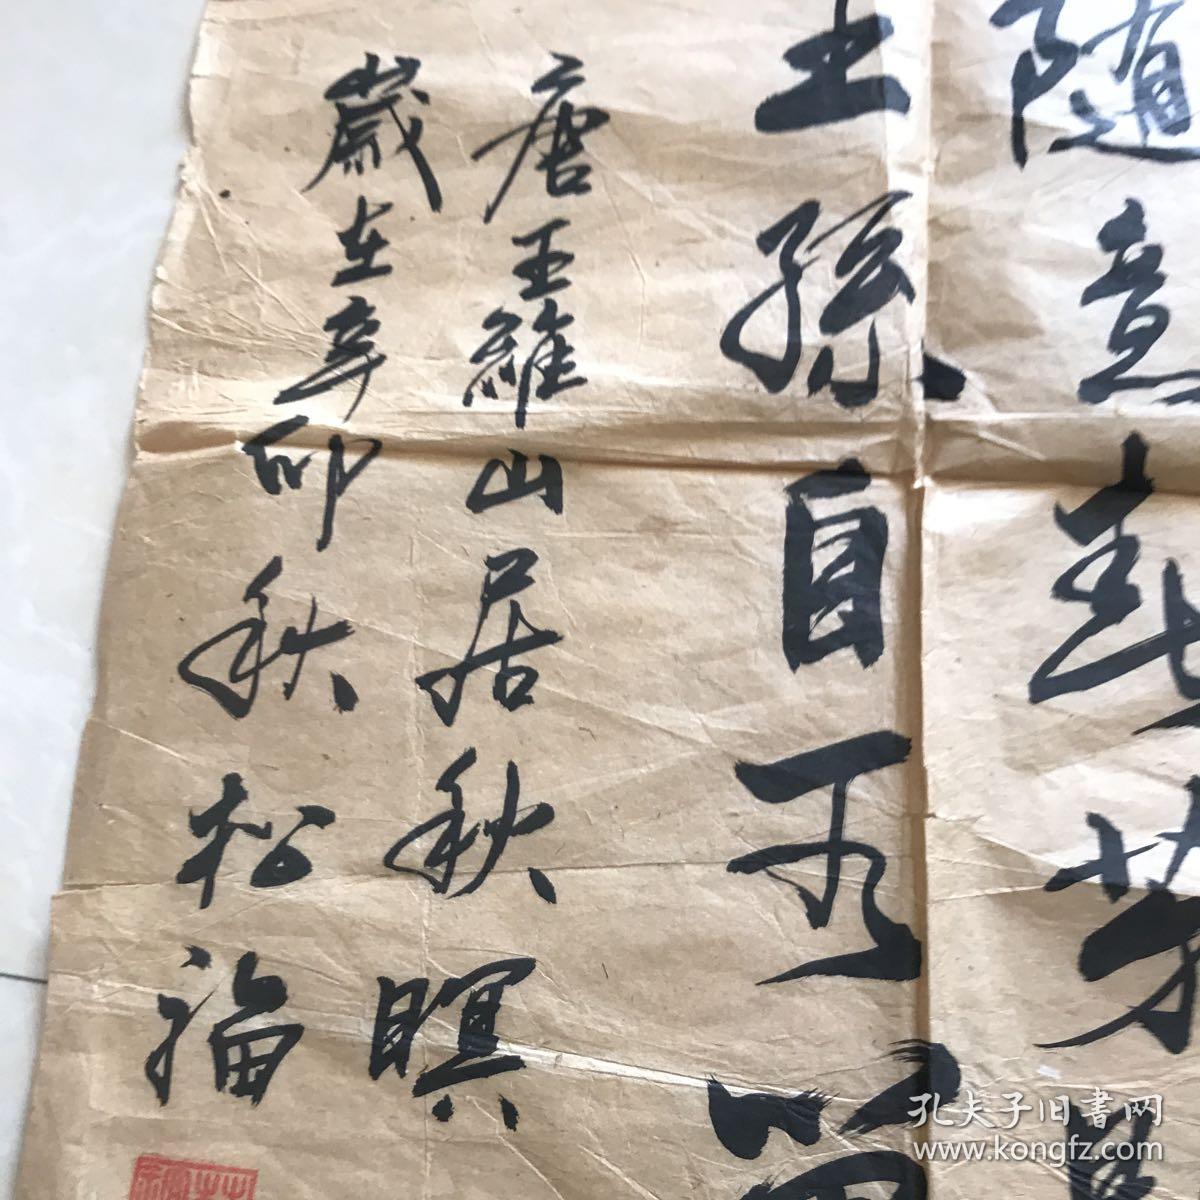 隨意春芳
王孫自可留
唐王維山居秋暝
歲在辛卯秋松福
孔夫子旧書网
www.kongfz.com